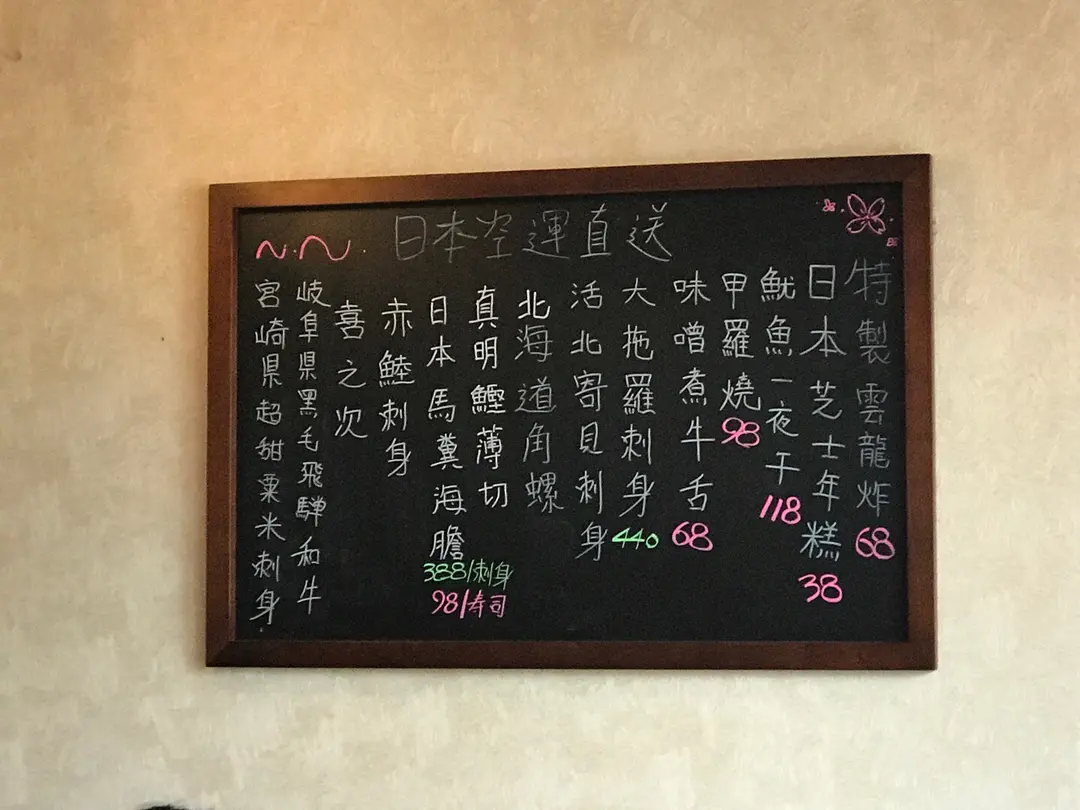 日本空運直送
特製雲龍炸 68
日本芝士年糕 38
魷魚一夜干 118
甲羅燒 98
味噌煮牛舌 68
大拖羅刺身 440
活北寄貝刺身
北海道角螺
真明鰹薄切
日本馬糞海膽
388/刺身
98/寿司
赤鯥刺身
喜之次
岐阜県黑毛飛騨和牛
宮崎県超甜粟米刺身